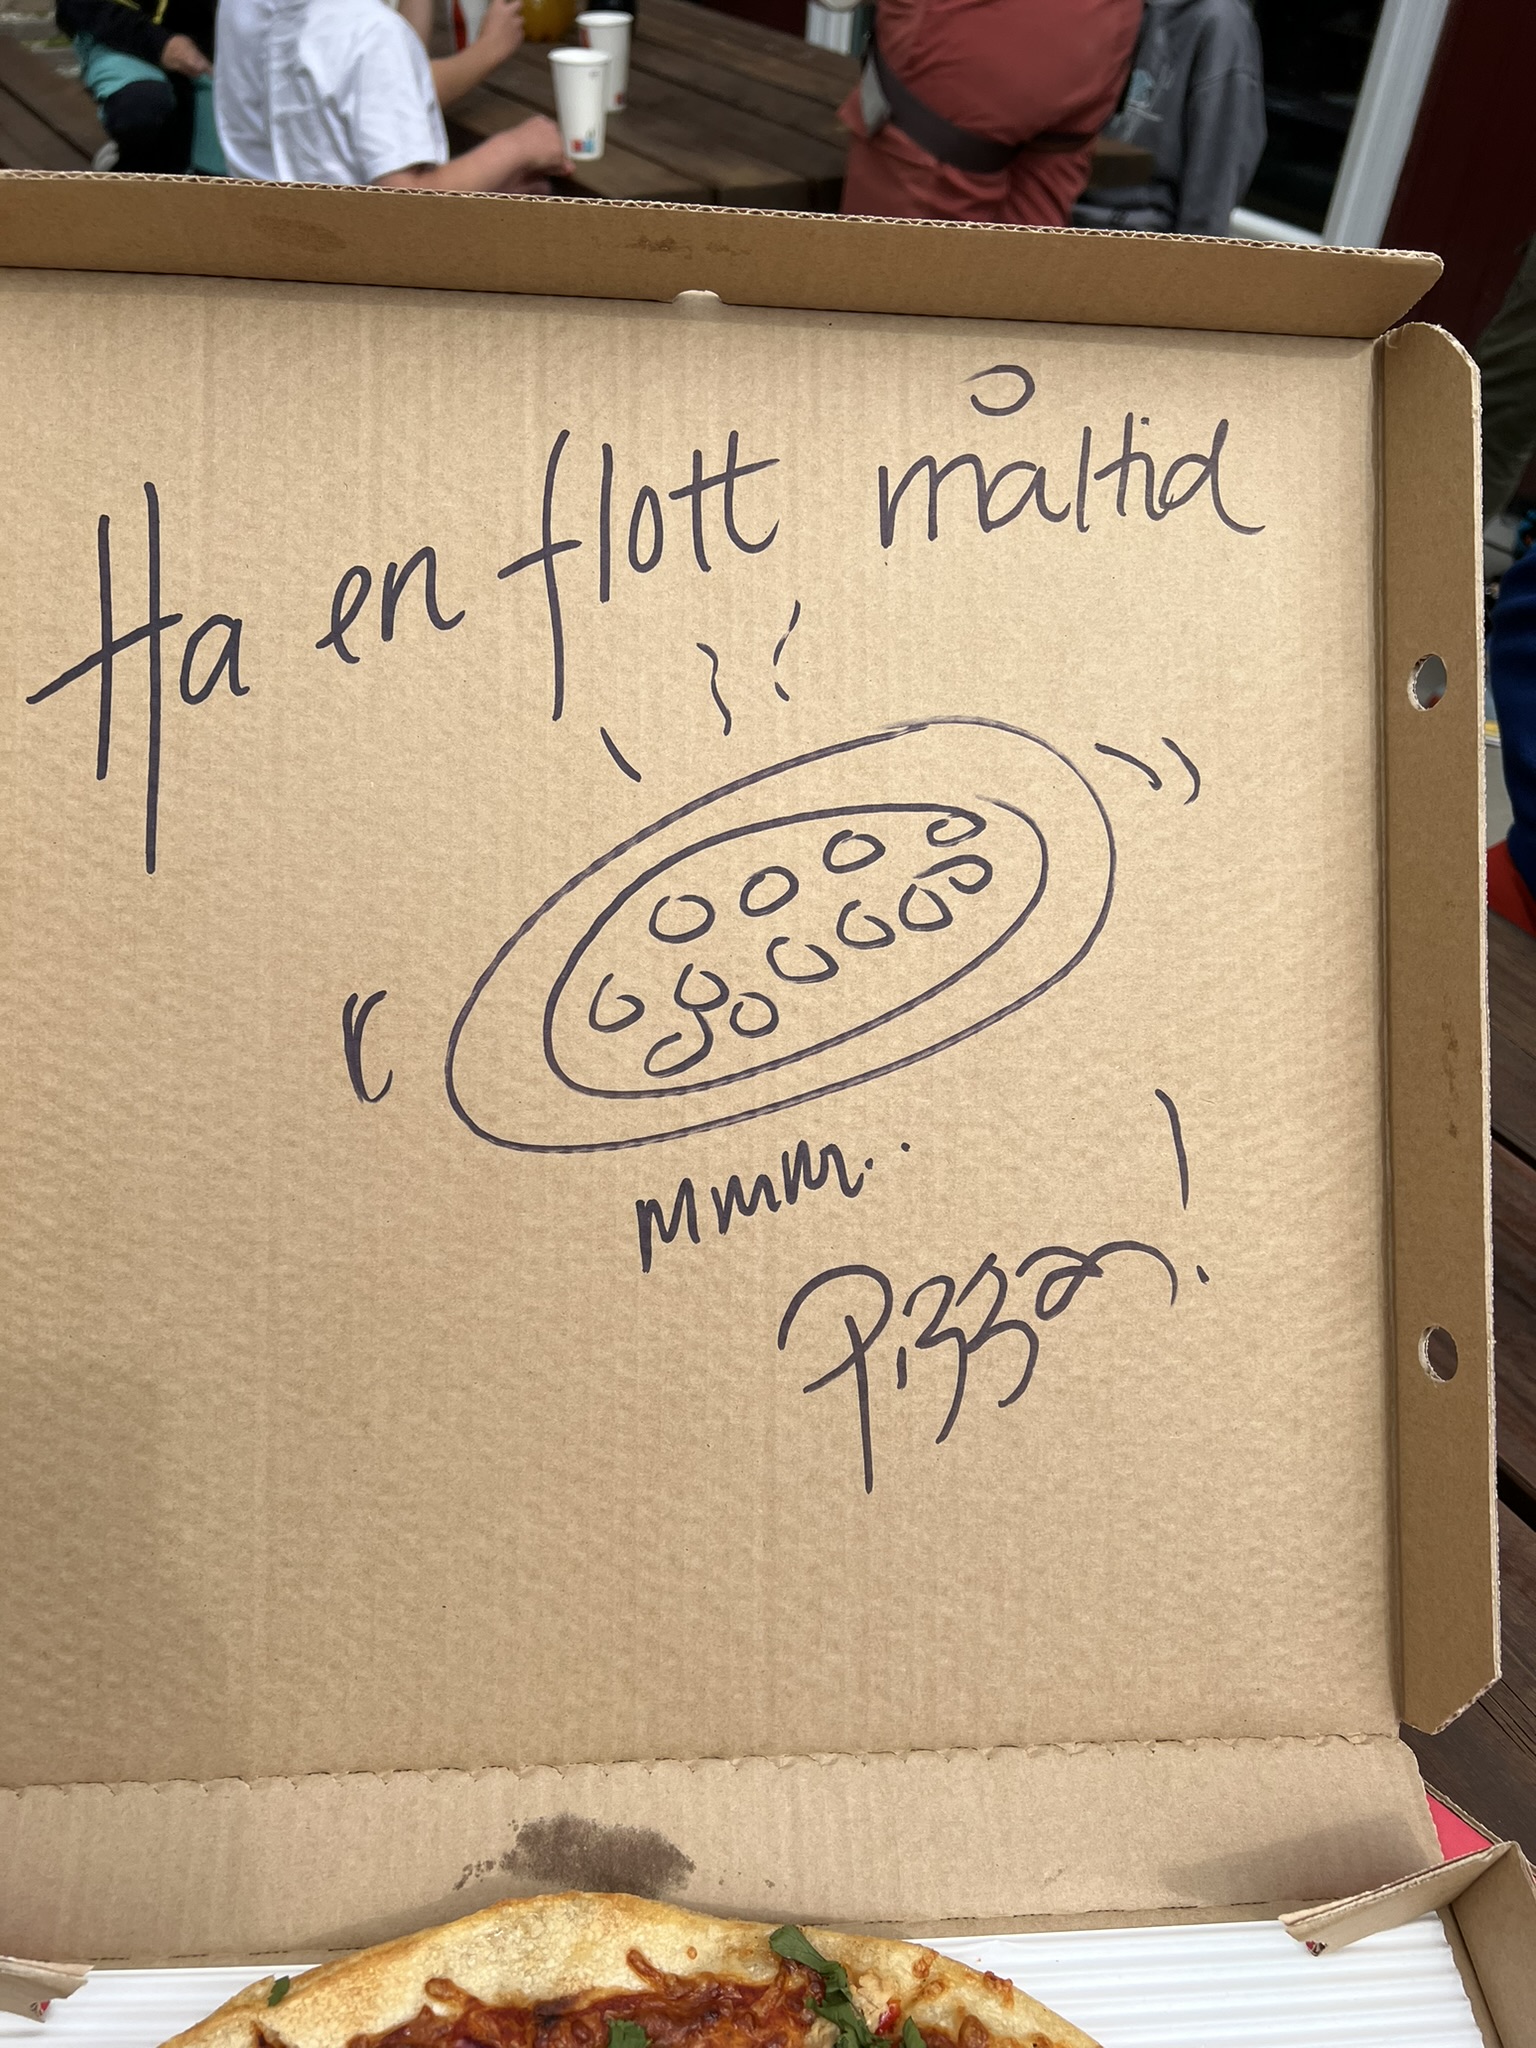 Ha en flott måltid
mmm..
Pizza!